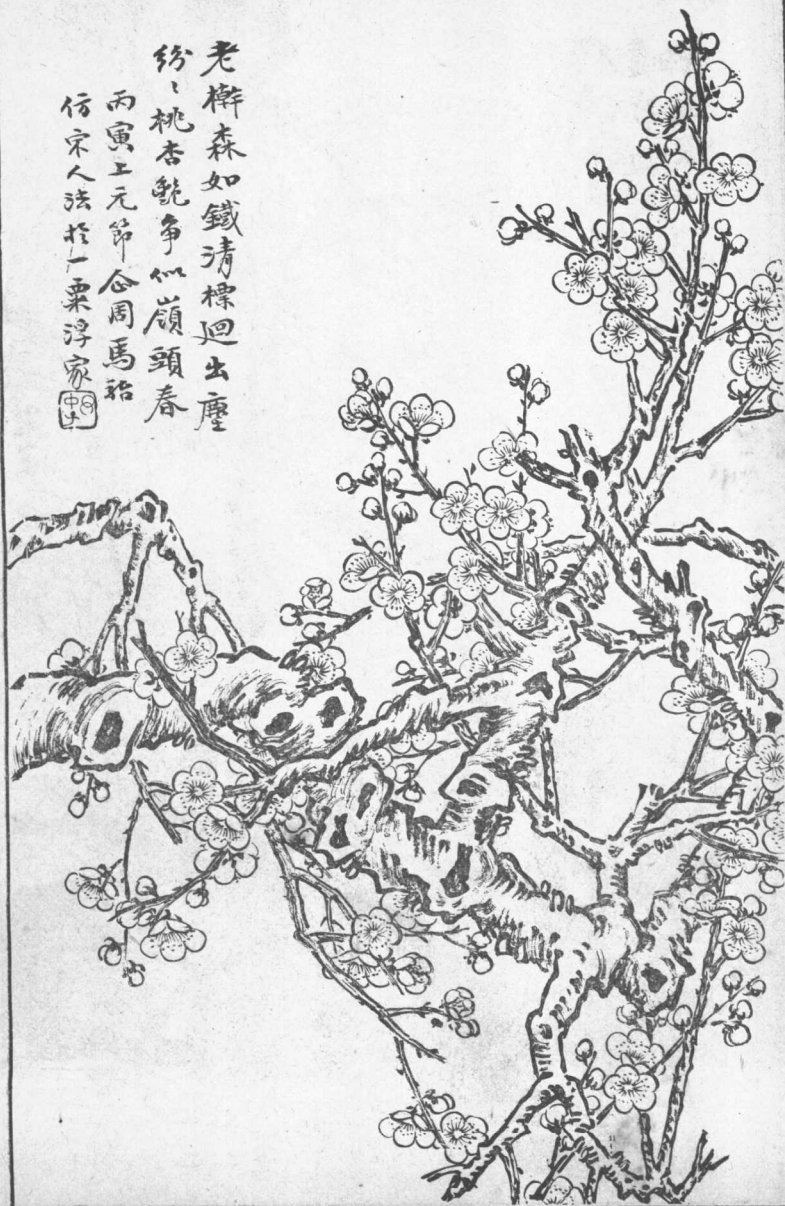 老榦森如鐵清標迥出塵
紛〻桃杏艷爭似嶺頭春
丙寅上元節企周馬駘
仿宋人法於一粟浮家